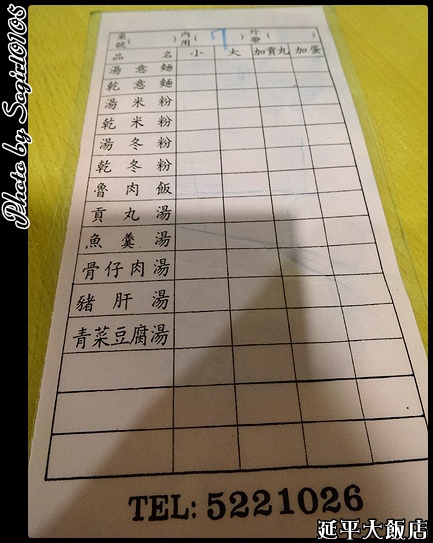 桌號( ) 內用( ) 7 外帶( )
品名 小 大 加貢丸 加蛋
湯意麵
乾意麵
湯米粉
乾米粉
湯冬粉
乾冬粉
魯肉飯
貢丸湯
魚羹湯
骨仔肉湯
豬肝湯
青菜豆腐湯
TEL: 5221026
延平大飯店
Photo by Sogirl0105